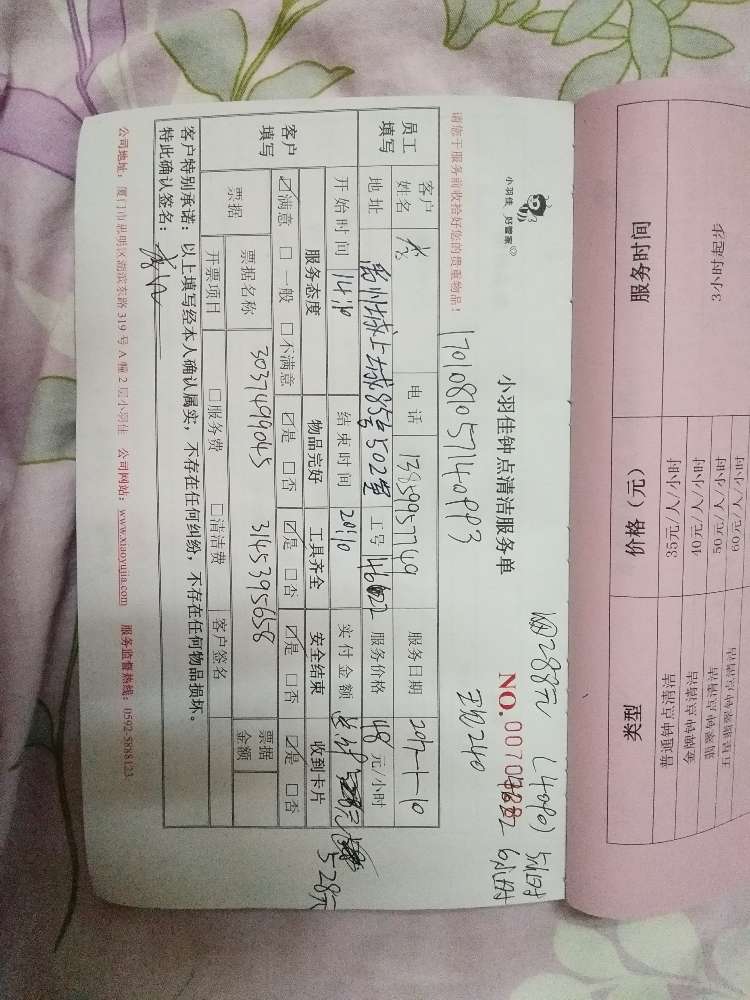 服务时间
价格（元）
类型
3小时起步
35元/人/小时
普通钟点清洁
40元/人/小时
金牌钟点清洁
50元/人/小时
60元/人/小时
小羽佳 好管家
小羽佳钟点清洁服务单
288元 (40%)
NO.
240
6小时
1701081057140993
请您于服务前收拾好您的贵重物品！
员工填写
客户姓名
电话 13859957749
服务日期 2017-1-10
地址 禹州城上城85号502室
工号
服务价格 48 元/小时
开始时间 14:10
结束时间 20:10
实付金额
528元
客户填写
服务态度
物品完好
工具齐全
安全结束
收到卡片
☑满意 □一般 □不满意
☑是 □否
☑是 □否
☑是 □否
☑是 □否
票据
票据名称
3037499045 3145395658
票据金额
开票项目
□服务费
□清洁费
客户签名
客户特别承诺：以上填写经本人确认属实，不存在任何纠纷，不存在任何物品损坏。
特此确认签名：
公司地址：厦门市思明区湖滨东路319号A幢2层小羽佳 公司网站：www.xiaoyujia.com 服务监督热线：0592-5888123